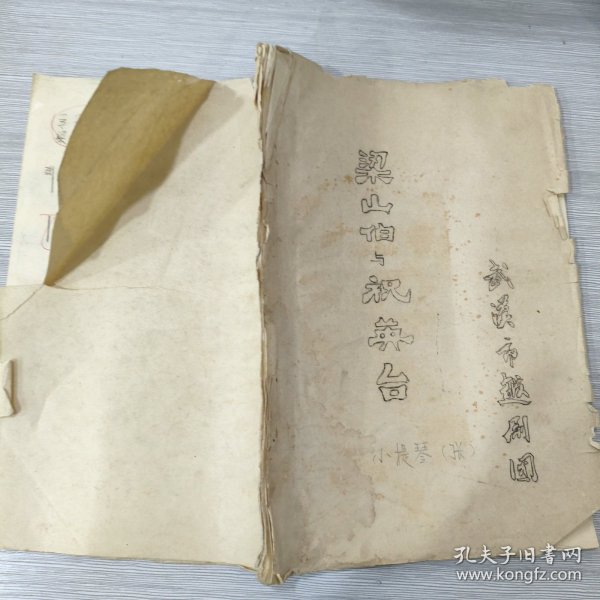 梁山伯与祝英台
武汉市越剧团
小提琴(张)
孔夫子旧书网
www.kongfz.com